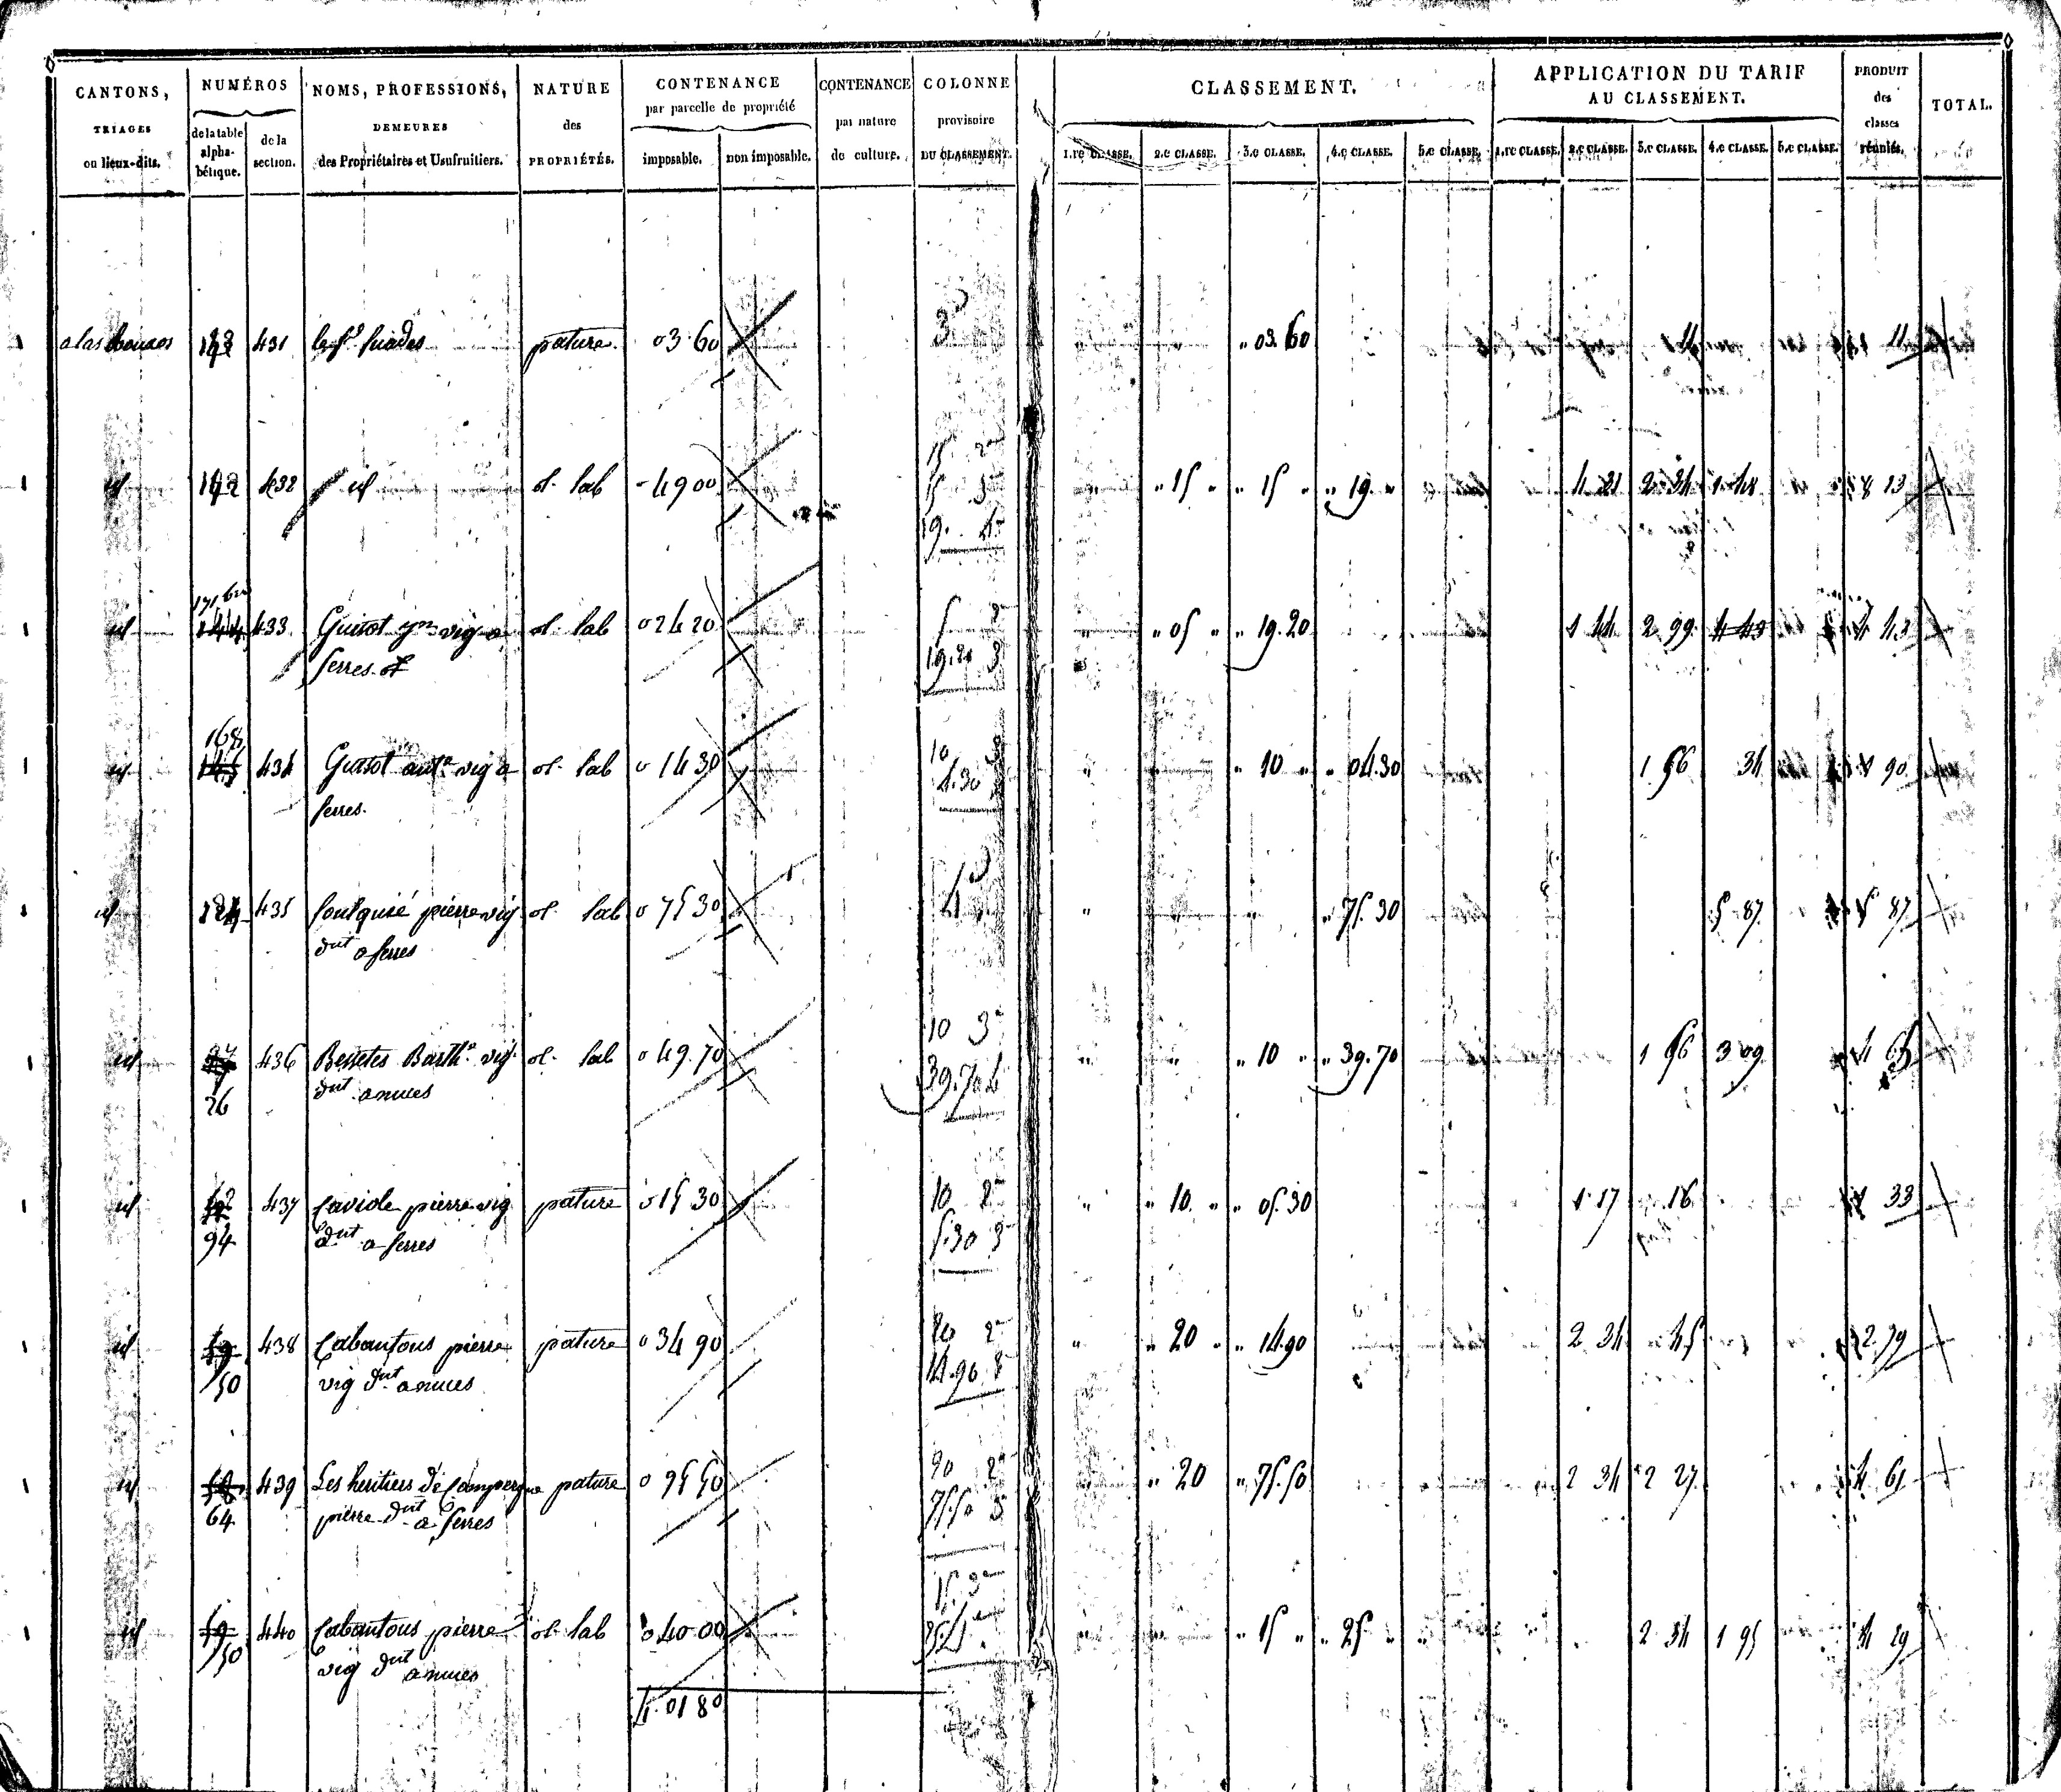 CANTONS, TRIAGES ou lieux-dits.
NUMÉROS de la table alphabétique. de la section.
NOMS, PROFESSIONS, DEMEURES des Propriétaires et Usufruitiers.
NATURE des PROPRIÉTÉS.
CONTENANCE par parcelle de propriété imposable. non imposable.
CONTENANCE par nature de culture.
COLONNE provisoire DU CLASSEMENT.
CLASSEMENT.
1.re CLASSE. 2.e CLASSE. 3.e CLASSE. 4.e CLASSE. 5.e CLASSE.
APPLICATION DU TARIF AU CLASSEMENT.
1.re CLASSE. 2.e CLASSE. 3.e CLASSE. 4.e CLASSE. 5.e CLASSE.
PRODUIT des classes réunies.
TOTAL.
431 pature 0 3 60 3 " 03.60 11 11
id 432 id ol. lab - 49 00 15 2 " 15 " " 15 " " 19 " 4 21 2 34 1 48 8 13
15 3
19. 4
171 bis
id 144 433 Guitot vig a ol. lab 0 24 20 5 2 " 05 " " 19.20 1 44 2 99 4 43 4 43
ferres. 19.20 3
168
id 434 Guitot ant.e vig a ol. lab 0 14 30 10 3 " 10 " " 04.30 1 56 34 1 90
ferres. 4.30
id 435 pierre vig ol. lab 0 75 30 4 " 75.30 5 87 5 87
dut a ferres
id 436 Barth.e vig. ol. lab 0 49.70 10 3 " 10 " " 39.70 1 56 3 09 4 65
26 dut anues 39.70 4
id 437 Caviole pierre vig pature 0 15 30 10 2 " 10. " " 05.30 1 17 16 1 33
94 dut a ferres 5.30 3
id 438 Cabantous pierre pature 0 34 90 20 2 " 20 " " 14.90 2 34 45 2.79
50 vig dut anues 14.90 3
id 439 Les heritiers De pature 0 95 50 20 2 " 20 " 75.50 2 34 2 27 4 61
64 pierre dut a ferres 75.50 3
id 440 Cabantous pierre ol. lab 0 40 00 15 3 " 15 " " 25 " 2 34 1 95 4 29
50 vig dut anues 25 4
4. 01 80